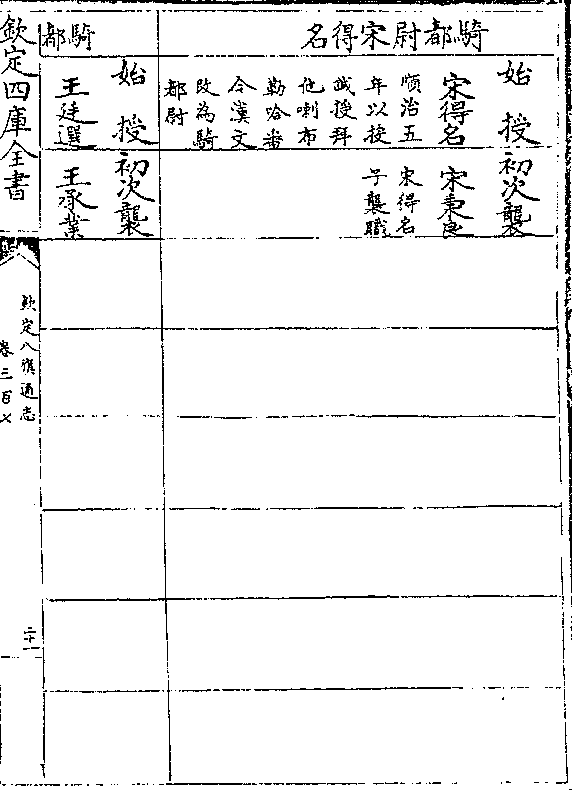 騎都尉宋得名
始授
宋得名
順治五
年以投
誠授拜
他喇布
勒哈番
今漢文
改為騎
都尉
初次襲
宋秉良
宋得名
子襲職
騎都
始授
王廷選
初次襲
王承業
欽定四庫全書
欽定八旗通志
卷三百七
二十一